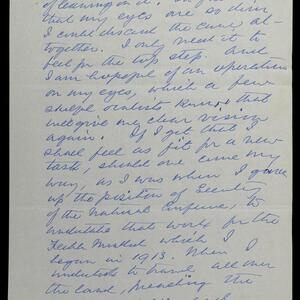 of leaning on it.
that my eyes are so dim
I could discard the cane al-
together. I only need it to
feel for the top step. And
I am hopeful of an operation
on my eyes, which a few
skilful oculists know, that
will give my clear vision
again. If I get that I
shall feel as fit for a new
task, should one come my
way, as I was when I gave
up the position of Secretary
of the National Conference, to
undertake that work for the
Feeble Minded which I
began in 1913. When I
undertook to travel all over
the land, preaching the